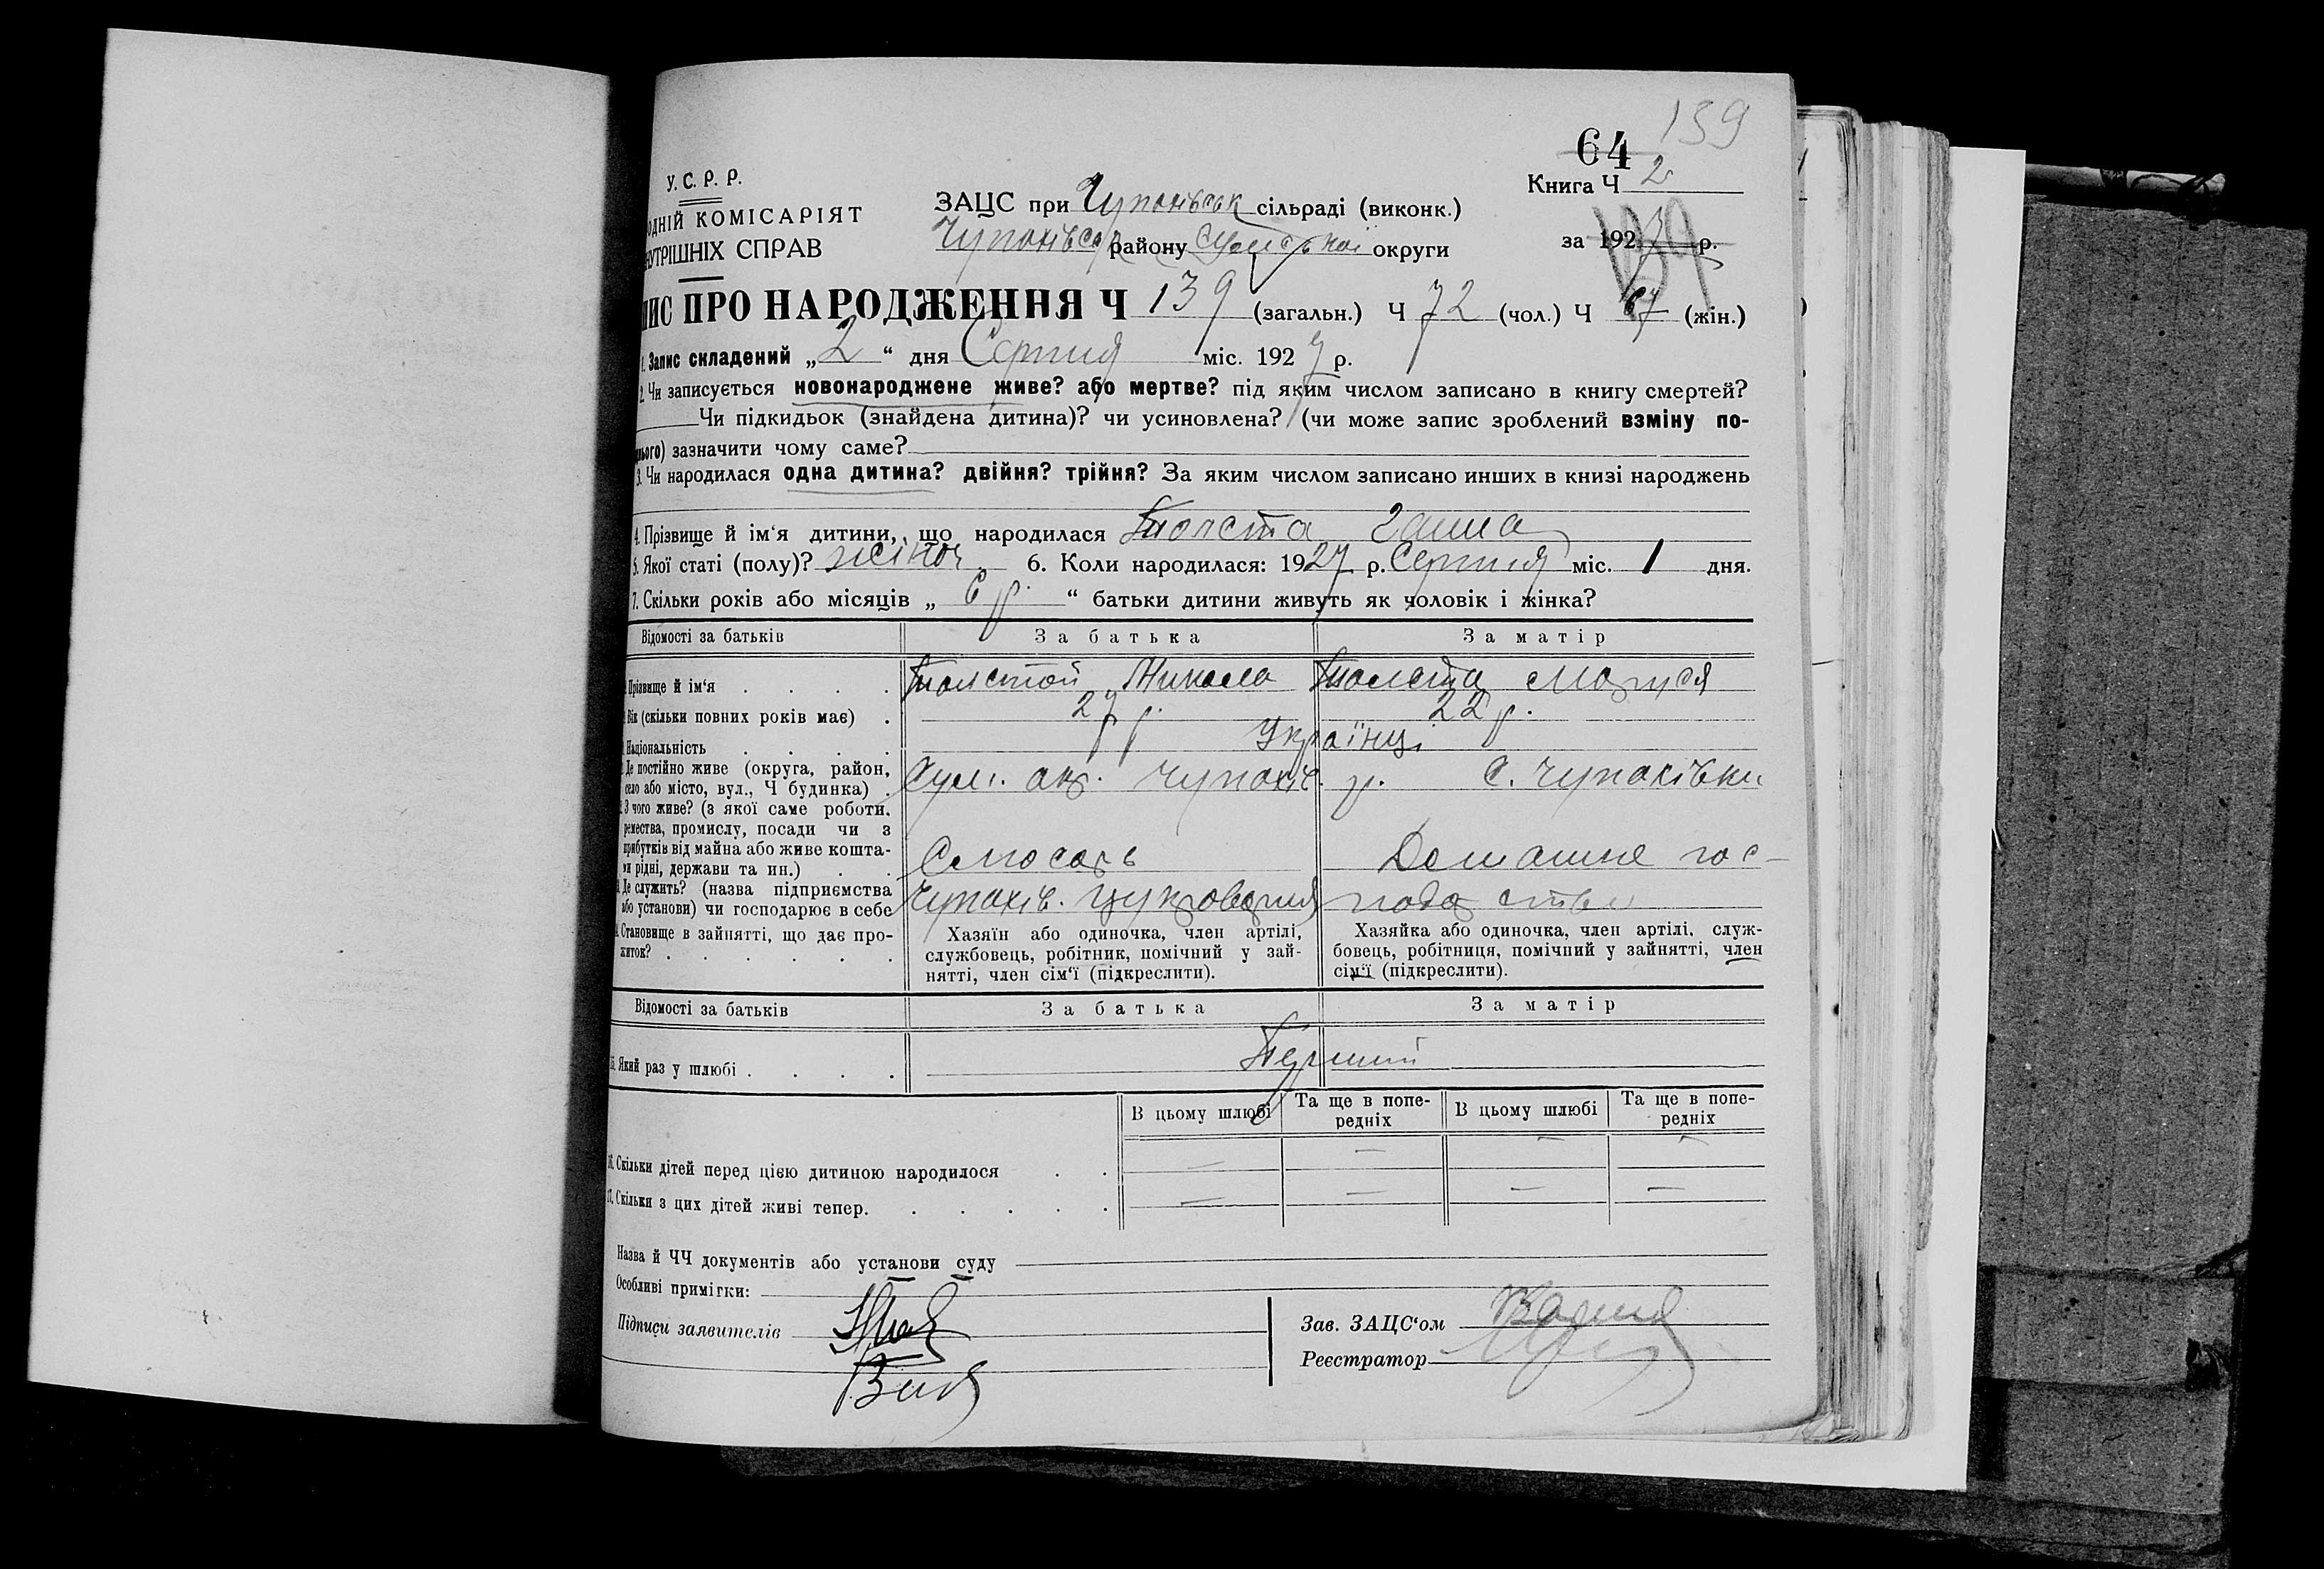 139
64
У. С. Р. Р.
Книга Ч 2
ОДНІЙ КОМІСАРІЯТ
ЗАЦС при Чупахівськ сільраді (виконк.)
НУТРІШНІХ СПРАВ
Чупахівськ району Сумської округи
за 1927 р.
139
ПИС ПРО НАРОДЖЕННЯ Ч 139 (загальн.) Ч 72 (чол.) Ч 67 (жін.)
1. Запис складений „2“ дня Серпня міс. 1927 р.
2. Чи записується новонароджене живе? або мертве? під яким числом записано в книгу смертей?
Чи підкидьок (знайдена дитина)? чи усиновлена? (чи може запис зроблений взміну по-
нього) зазначити чому саме?
3. Чи народилася одна дитина? двійня? трійня? За яким числом записано инших в книзі народжень
4. Прізвище й ім‘я дитини, що народилася Толста Ганна
5. Якої статі (полу)? жіноч. 6. Коли народилася: 1927 р. Серпня міс. 1 дня.
7. Скільки років або місяців „6 р.“ батьки дитини живуть як чоловік і жінка?
Відомості за батьків За батька За матір
Прізвище й ім‘я . . . . Толстой Микола Толста Маруся
Вік (скільки повних років має) . 27 р. 22 р.
Національність . . . . Українці
Де постійно живе (округа, район,
село або місто, вул., Ч будинка) . Сум. окр. Чупахів. р. С. Чупахівки
З чого живе? (з якої саме роботи.
ремества, промислу, посади чи з
прибутків від майна або живе кошта-
ми рідні, держави та ин.) . . Слюсарь Домашнє гос-
Де служить? (назва підприємства
або установи) чи господарює в себе Чупахів. цукроварня подарство
Становище в зайнятті, що дає про-
житок? . . . . . .
Хазяїн або одиночка, член артілі,
службовець, робітник, помічний у зай-
нятті, член сім‘ї (підкреслити).
Хазяйка або одиночка, член артілі. служ-
бовець, робітниця, помічний у зайнятті, член
сім‘ї (підкреслити).
Відомості за батьків За батька За матір
15. Який раз у шлюбі . . . . Перший
В цьому шлюбі Та ще в попе-редніх В цьому шлюбі Та ще в попе-редніх
16. Скільки дітей перед цією дитиною народилося . . — — — —
17. Скільки з цих дітей живі тепер. . . . . . — — — —
Назва й ЧЧ документів або установи суду
Особливі примітки:
Підписи заявителів
Зав. ЗАЦС‘ом
Реєстратор